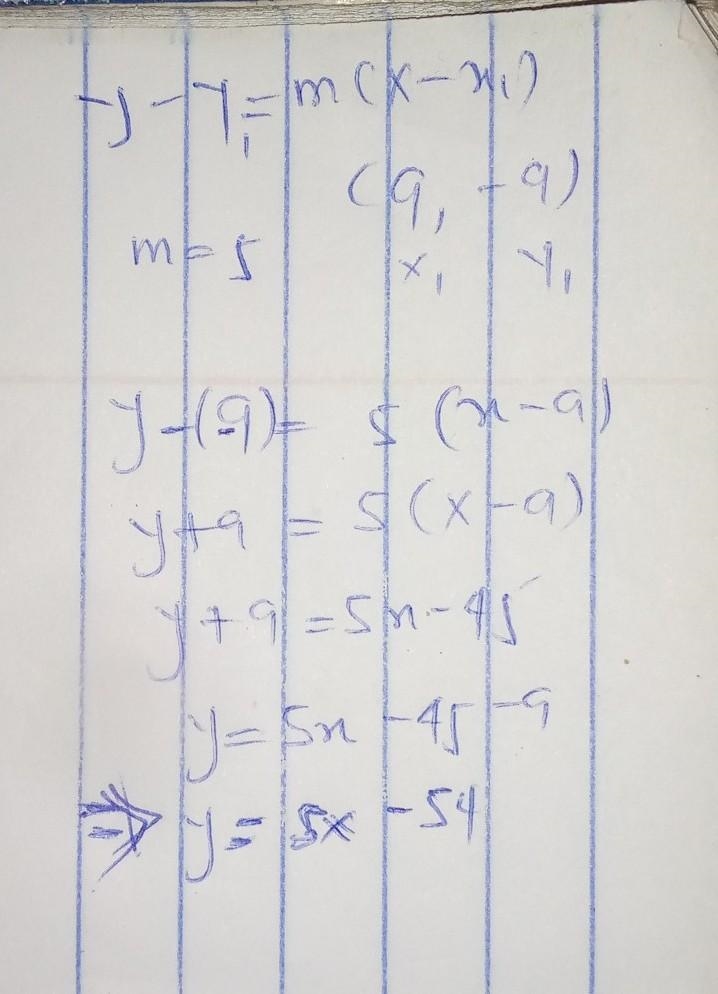 y - y₁ = m(x - x₁)
(9, -9)
m = 5 x₁ y₁
y - (-9) = 5 (x - 9)
y + 9 = 5 (x - 9)
y + 9 = 5x - 45
y = 5x - 45 - 9
⇒ y = 5x - 54